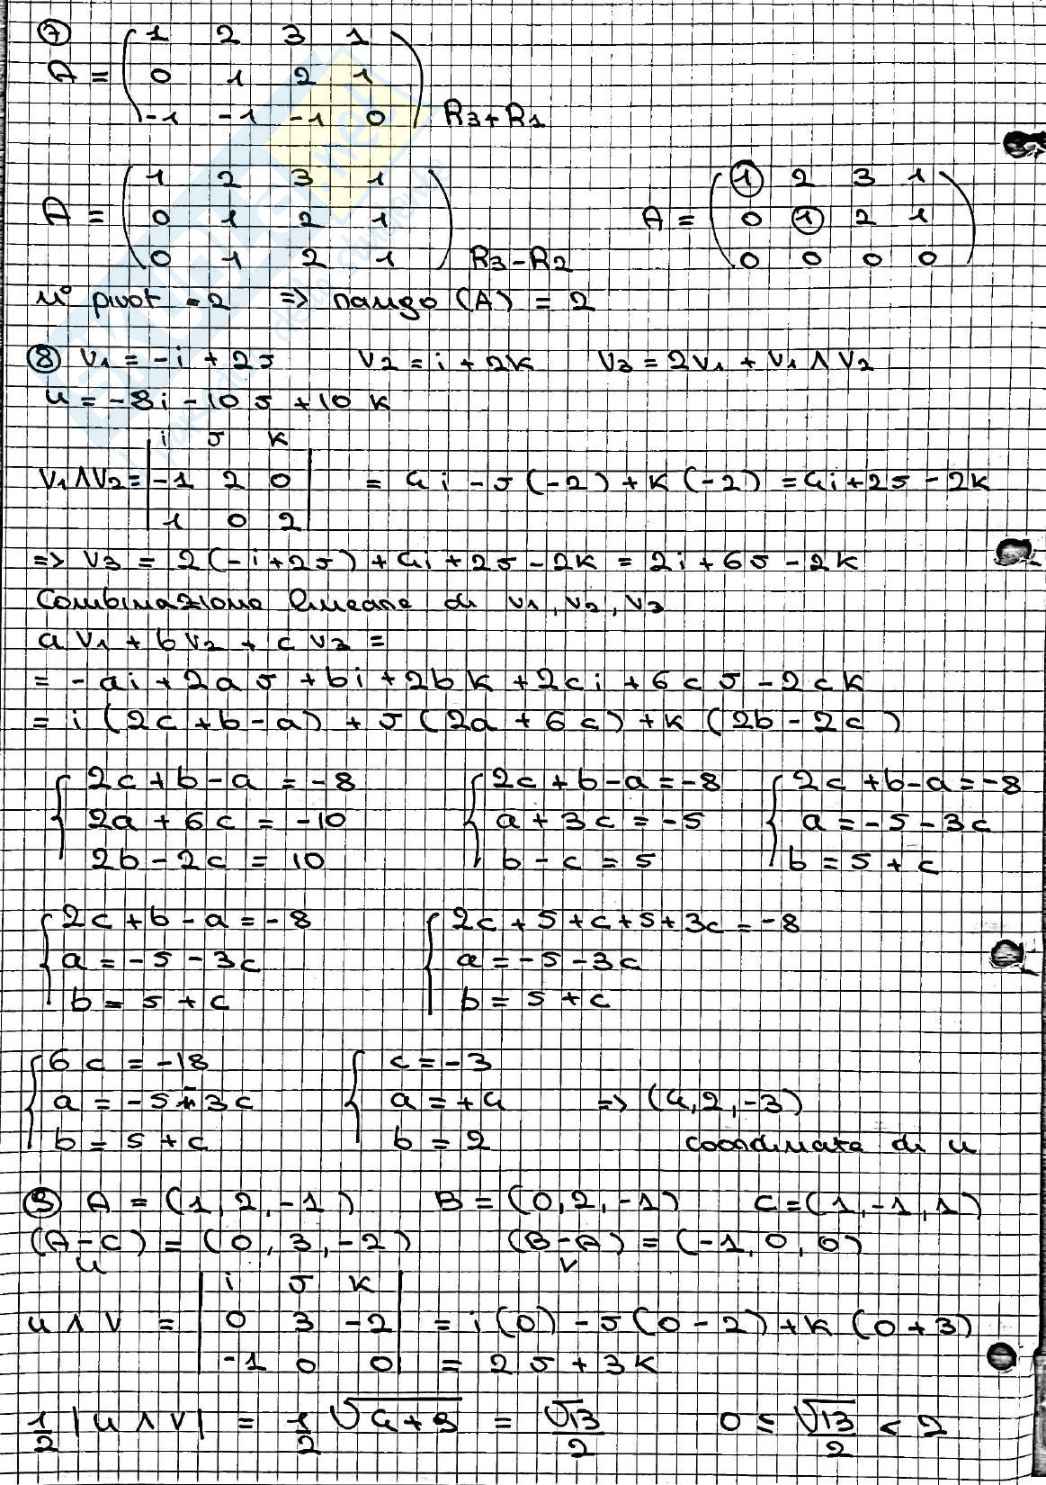 7
A = ( 1 2 3 1
0 1 2 1
-1 -1 -1 0 ) R3+R1
A = ( 1 2 3 1
0 1 2 1
0 1 2 1 ) R3-R2
A = ( 1 2 3 1
0 1 2 1
0 0 0 0 )
n° pivot = 2 => rango (A) = 2
8 V1 = -i + 2J V2 = i + 2K V3 = 2V1 + V1 ∧ V2
u = -8i - 10J + 10K
V1∧V2 = | i J K
-1 2 0
1 0 2 | = 4i - J(-2) + K(-2) = 4i + 2J - 2K
=> V3 = 2(-i+2J) + 4i + 2J - 2K = 2i + 6J - 2K
Combinazione lineare di V1, V2, V3
a V1 + b V2 + c V3 =
= -ai + 2aJ + bi + 2bK + 2ci + 6cJ - 2cK
= i(2c+b-a) + J(2a+6c) + K(2b-2c)
{ 2c+b-a = -8
2a+6c = -10
2b-2c = 10
{ 2c+b-a = -8
a+3c = -5
b-c = 5
{ 2c+b-a = -8
a = -5-3c
b = 5+c
{ 2c+b-a = -8
a = -5-3c
b = 5+c
{ 2c+5+c+5+3c = -8
a = -5-3c
b = 5+c
{ 6c = -18
a = -5-3c
b = 5+c
{ c = -3
a = +4
b = 2
=> (4,2,-3)
coordinate di u
9 A = (1,2,-1) B = (0,2,-1) C = (1,-1,1)
(A-C) = (0,3,-2) (B-A) = (-1,0,0)
u v
u ∧ v = | i J K
0 3 -2
-1 0 0 | = i(0) - J(0-2) + K(0+3)
= 2J + 3K
1/2 |u ∧ v| = 1/2 √4+9 = √13/2 0 ≤ √13/2 < 2